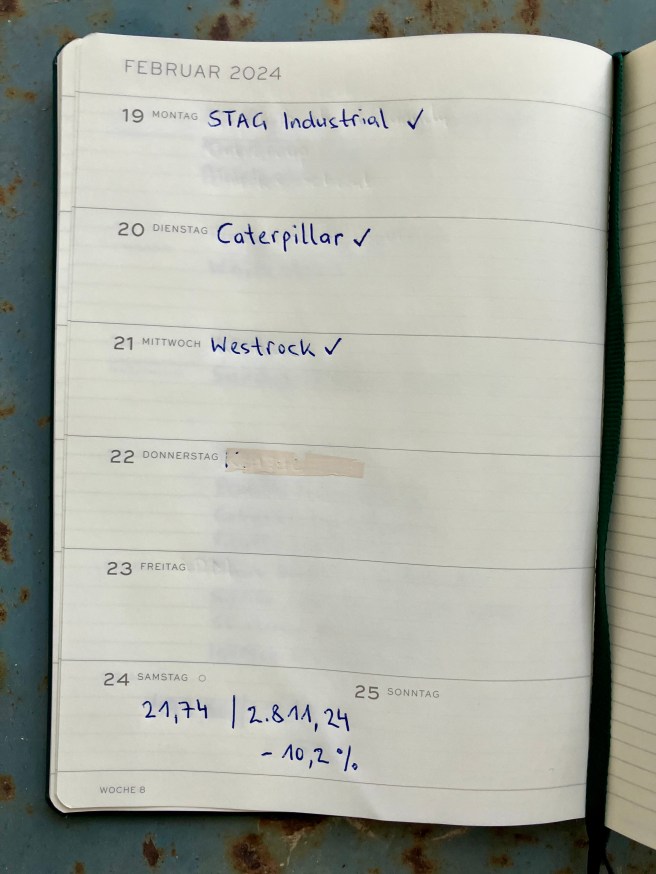 FEBRUAR 2024
19 MONTAG STAG Industrial ✓
20 DIENSTAG Caterpillar ✓
21 MITTWOCH Westrock ✓
22 DONNERSTAG
23 FREITAG
24 SAMSTAG
25 SONNTAG
21,74 | 2.811,24
- 10,2 %
WOCHE 8